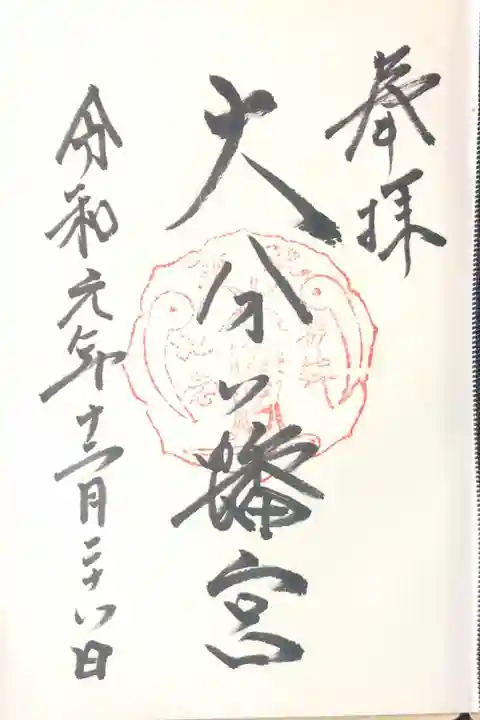 奉拝
大分八幡宮
令和元年十二月二十八日